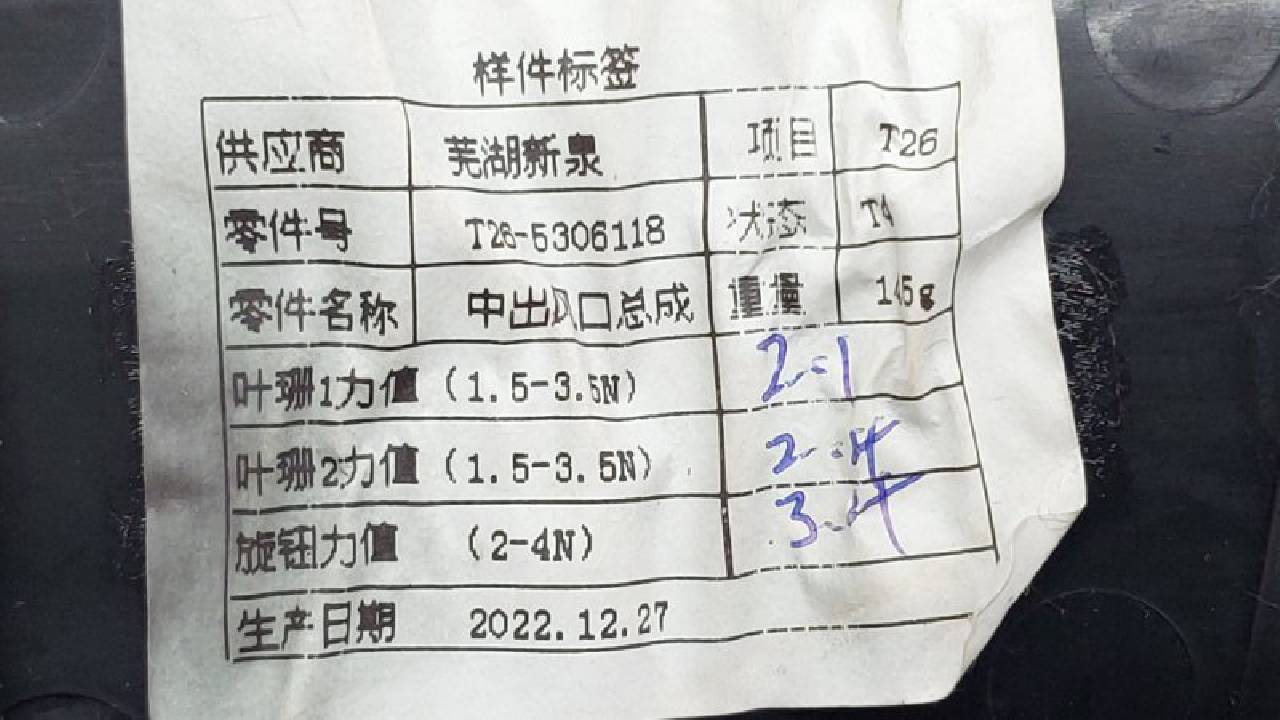 样件标签
供应商 芜湖新泉 项目 T26
零件号 T26-5306118 状态 T1
零件名称 中出风口总成 重量 145g
叶珊1力值（1.5-3.5N） 2.1
叶珊2力值（1.5-3.5N） 2.4
旋钮力值 （2-4N） 3.4
生产日期 2022.12.27